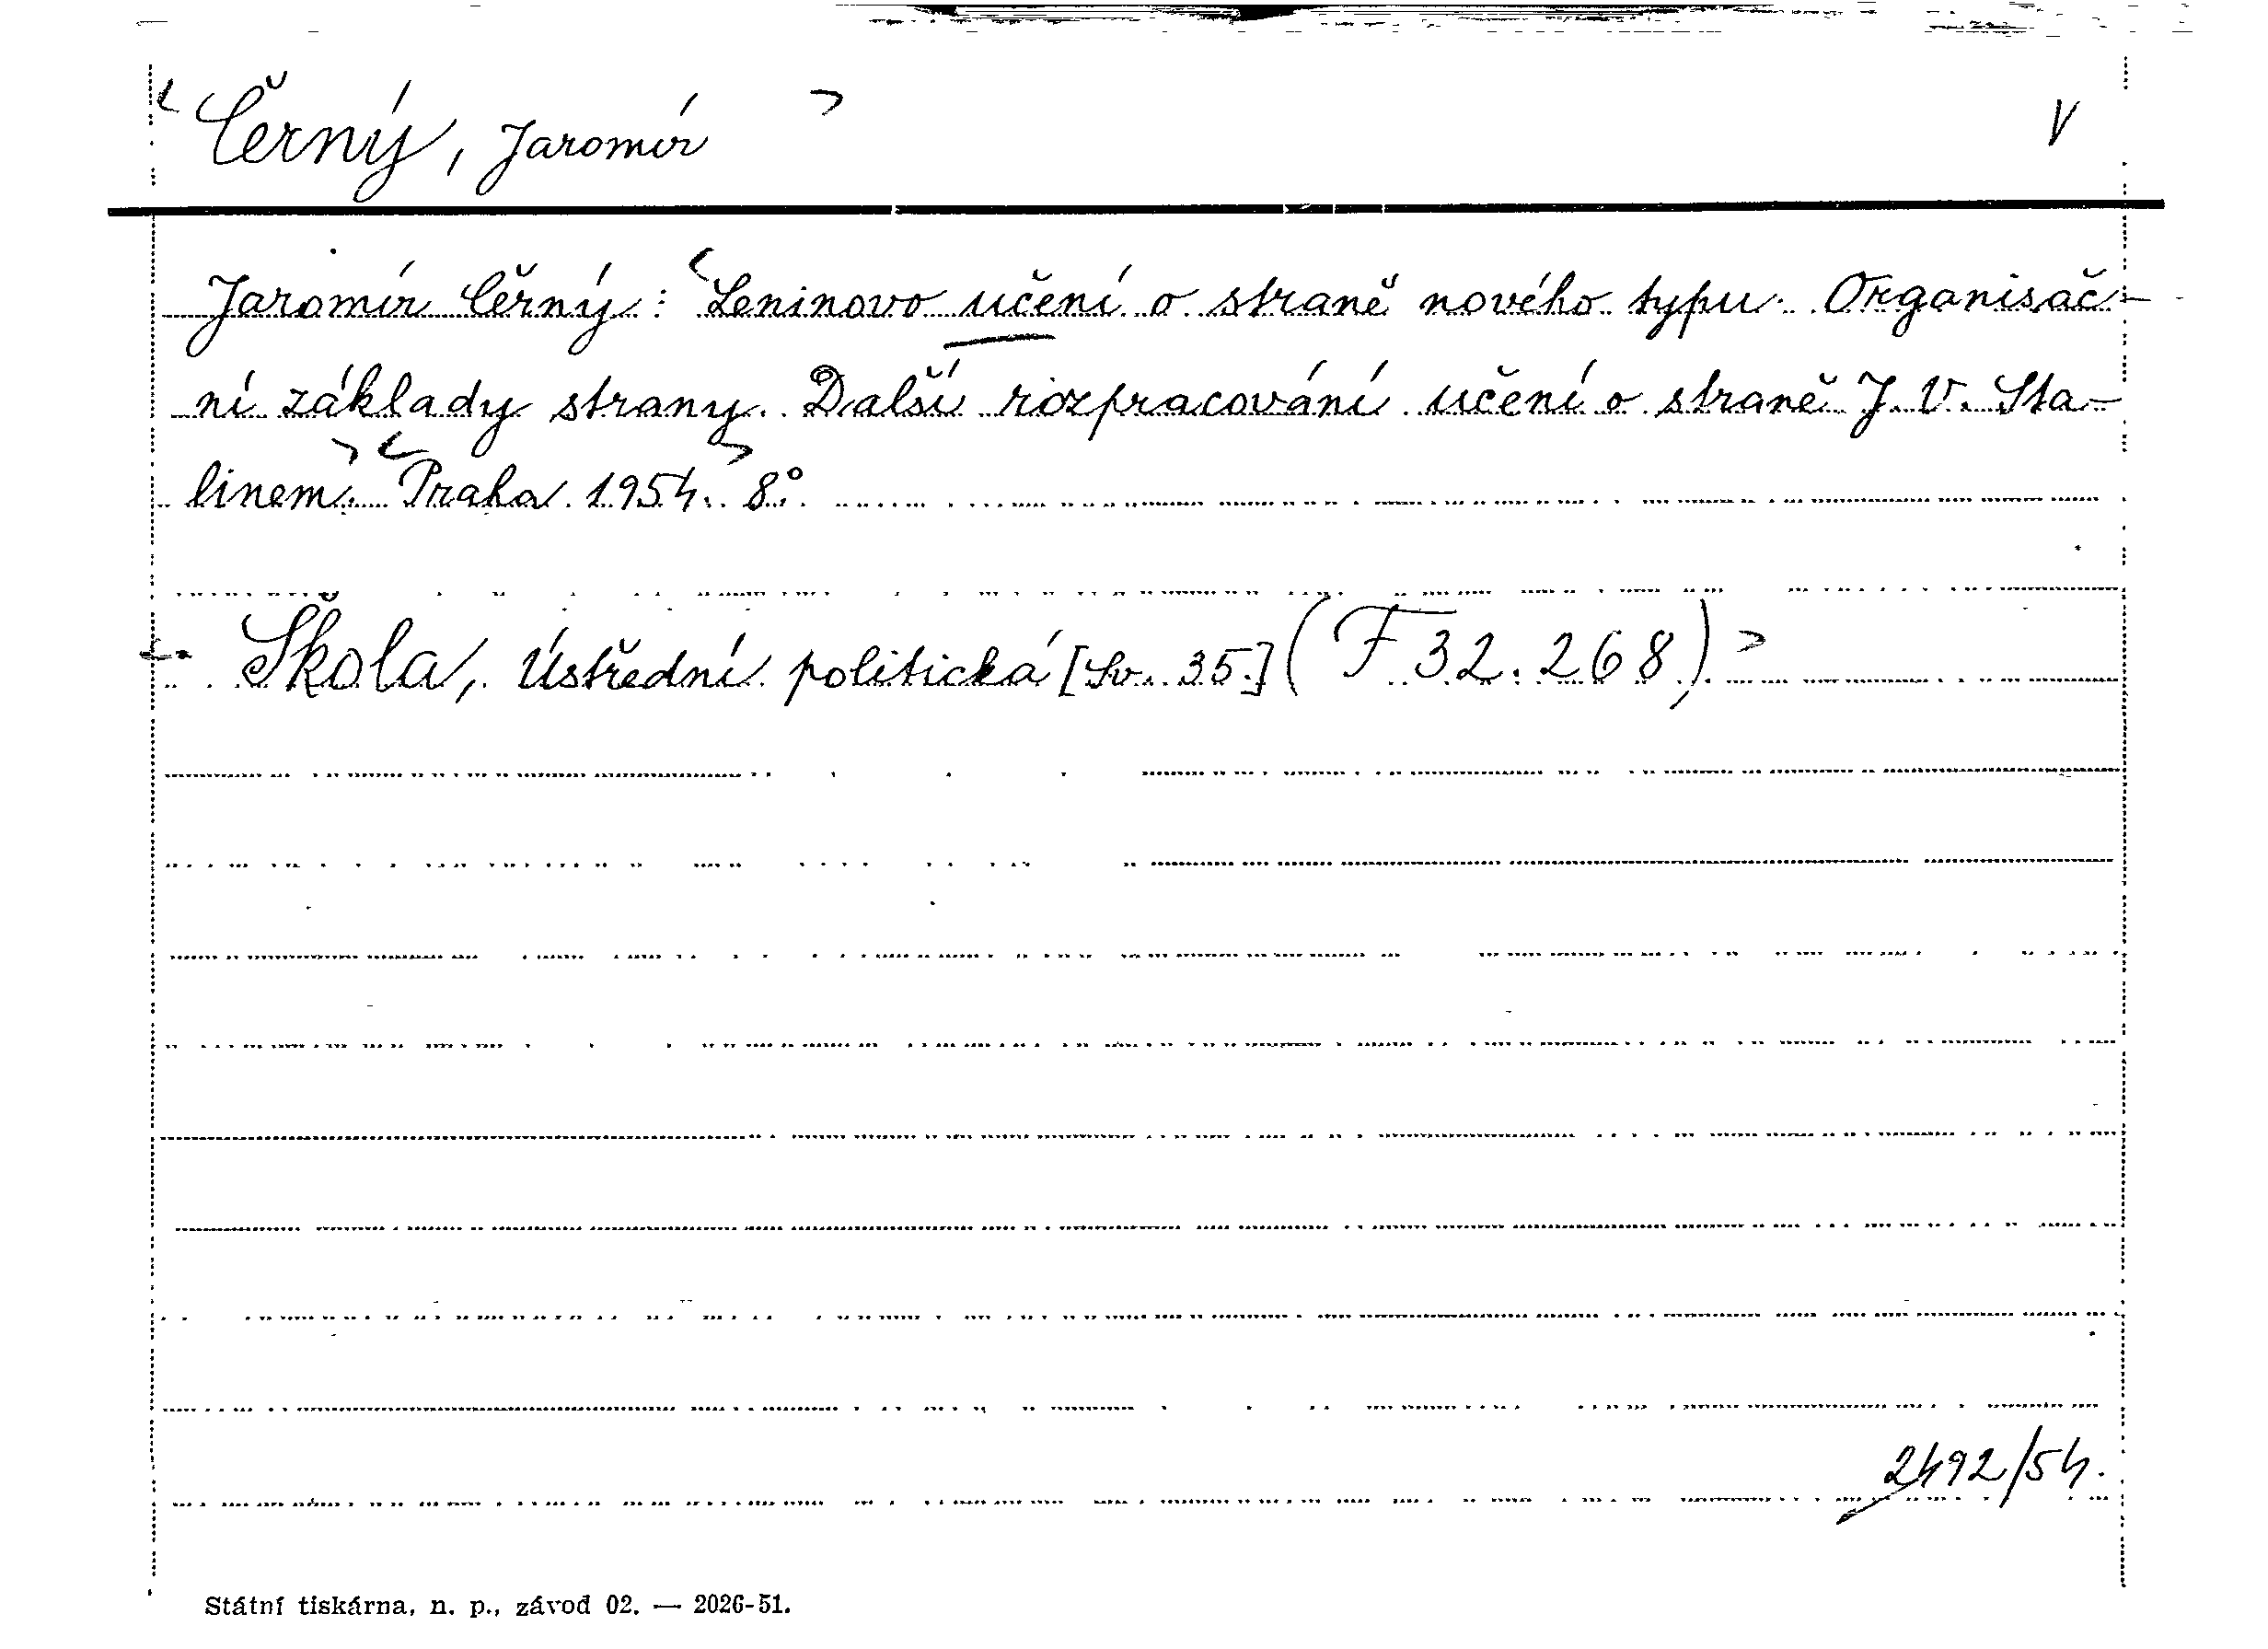 < Černý, Jaromír > V
Jaromír Černý: <Leninovo učení o straně nového typu. Organisač-
ní základy strany. Další rozpracování učení o straně J. V. Sta-
linem.> <Praha 1954.> 8°.
<. Škola, Ústřední politická [Sv. 35.] (F 32.268) >
2492/54.
Státní tiskárna, n. p., závod 02. — 2026-51.